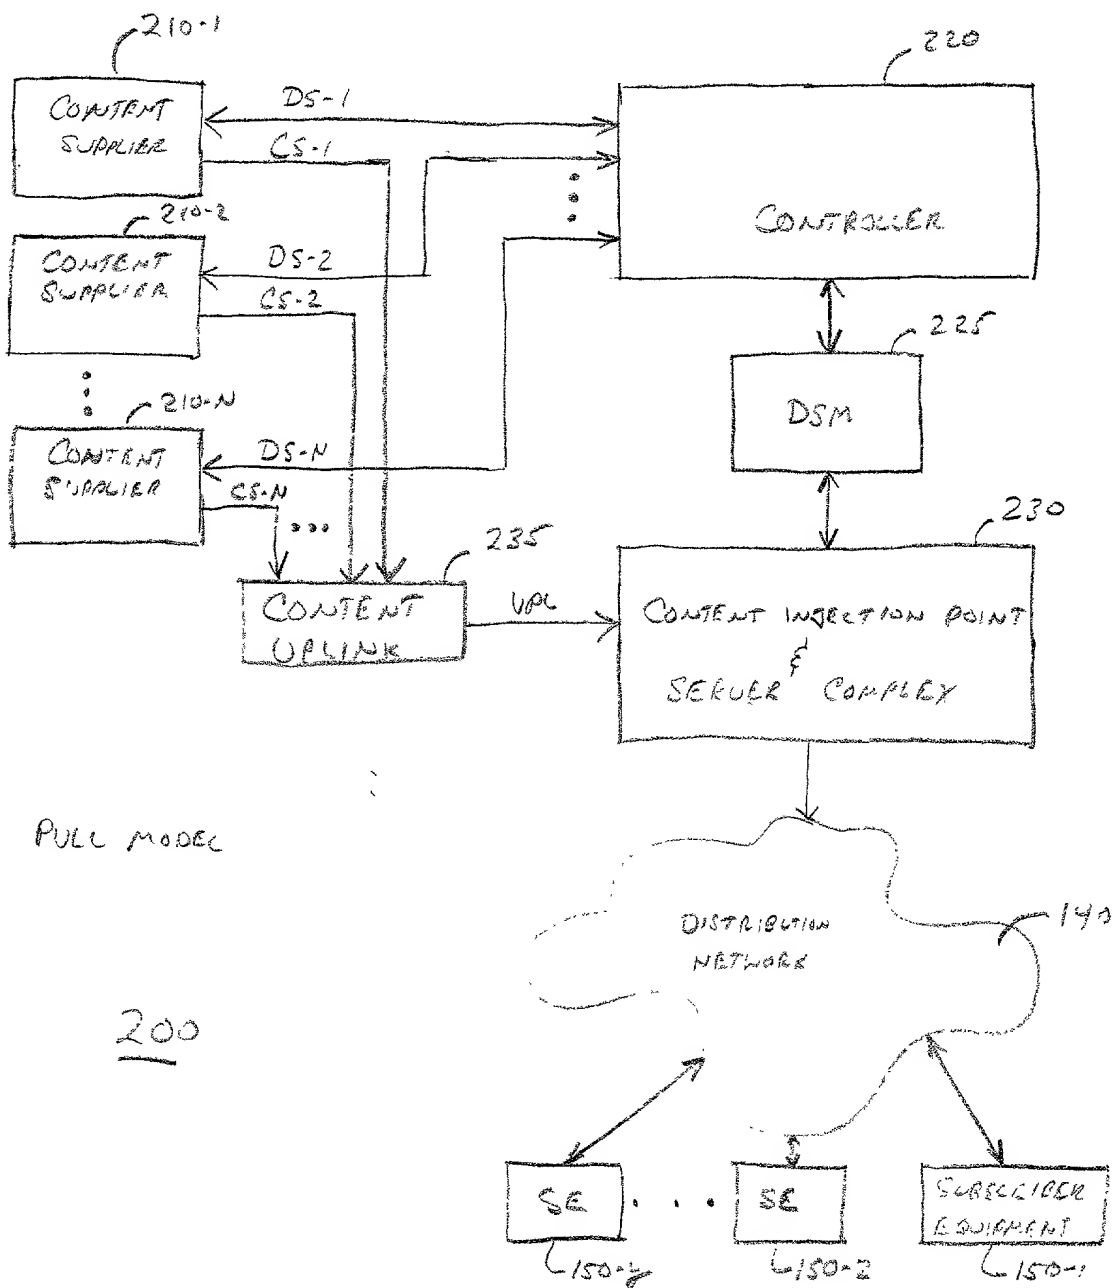 210-1
CONTENT
SUPPLIER
DS-1
CS-1
220
CONTROLLER
210-2
CONTENT
SUPPLIER
DS-2
CS-2
225
DSM
210-N
CONTENT
SUPPLIER
DS-N
CS-N
235
CONTENT
UPLINK
UPL
230
CONTENT INJECTION POINT
&
SERVER COMPLEX
PULL MODEL
DISTRIBUTION
NETWORK
140
200
SE
SE
SUBSCRIBER
EQUIPMENT
150-2
150-1